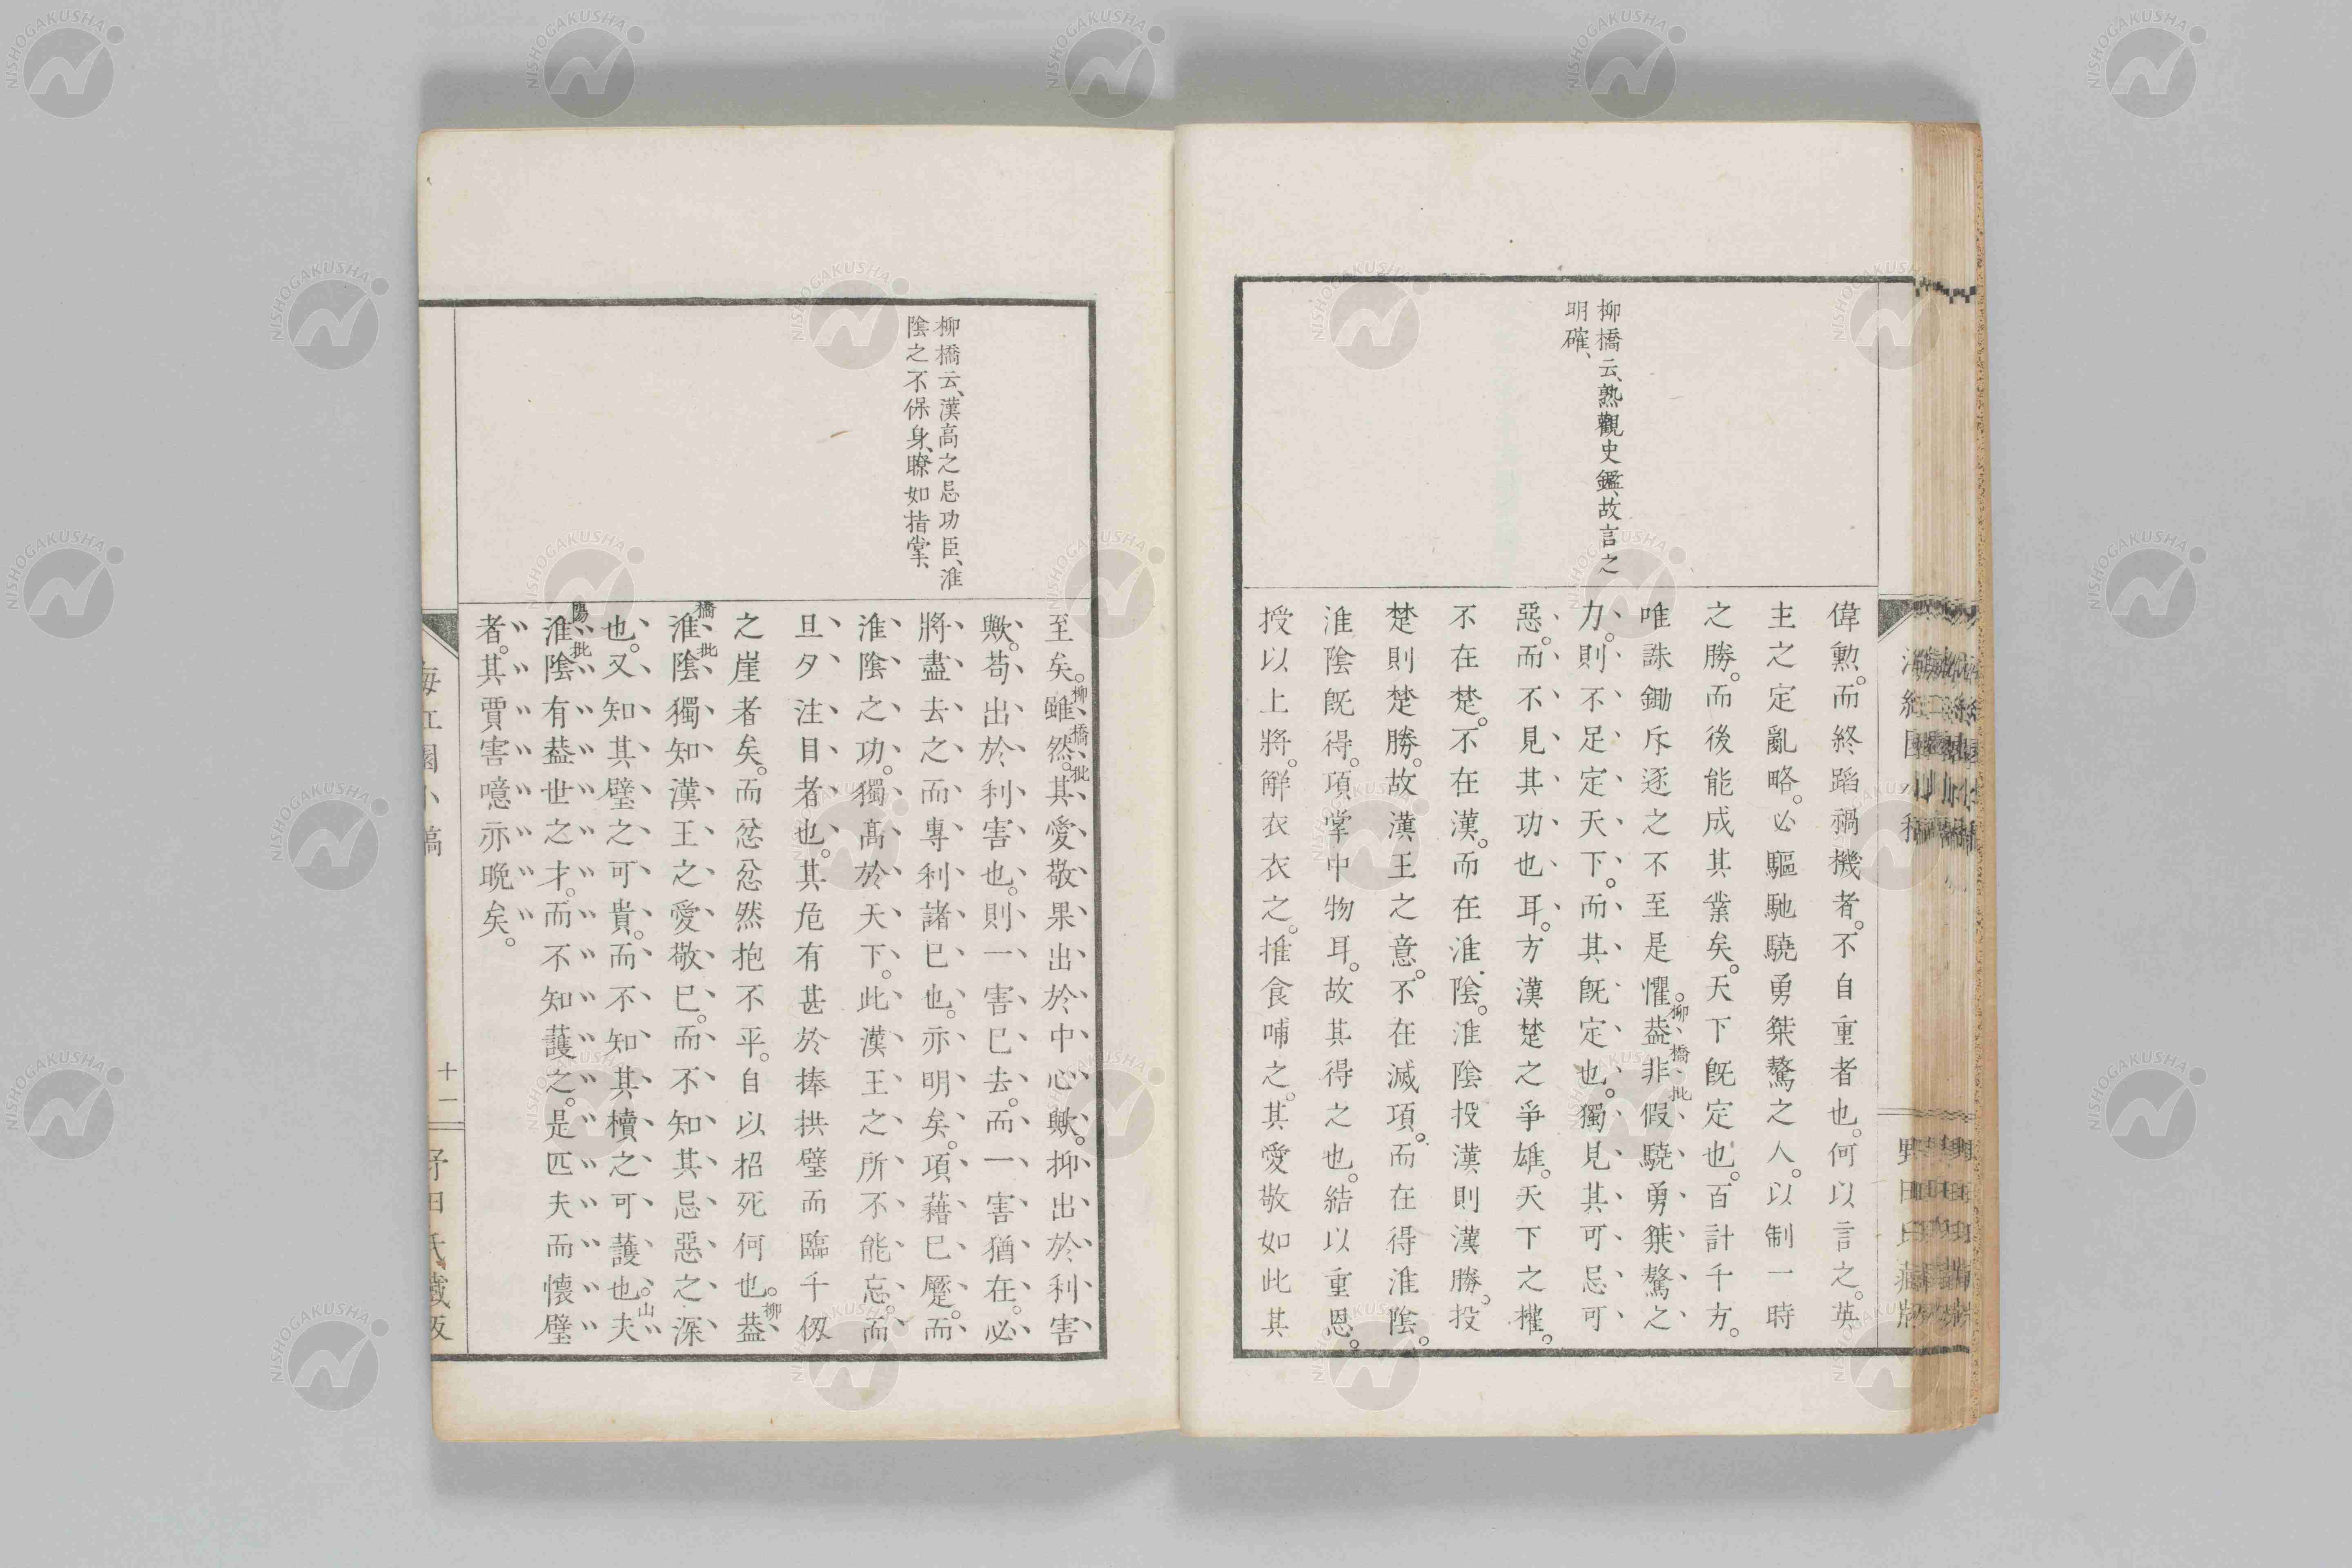 柳橋云、熟觀史鑑、故言之
明確、
偉勲。而終蹈禍機者。不自重者也。何以言之。英
主之定亂略。必驅馳驍勇桀驁之人。以制一時
之勝。而後能成其業矣。天下既定也。百計千方。
唯誅鋤斥逐之不至是懼。葢非假驍勇桀驁之
柳橋批
力。則不足定天下。而其既定也。獨見其可忌可
惡。而不見其功也耳。方漢楚之爭雄。天下之權。
不在楚。不在漢。而在淮陰。淮陰投漢則漢勝。投
楚則楚勝。故漢王之意。不在滅項。而在得淮陰。
淮陰既得。項掌中物耳。故其得之也。結以重恩。
授以上將。解衣衣之。推食哺之。其愛敬如此其
柳橋云、漢高之忌功臣、淮
陰之不保身、瞭如指掌、
至矣。雖然。其愛敬果出於中心歟。抑出於利害
柳橋批
歟。苟出於利害也。則一害已去。而一害猶在。必
將盡去之而專利諸已也。亦明矣。項藉已壓。而
淮陰之功。獨高於天下。此漢王之所不能忘。而
旦夕注目者也。其危有甚於捧拱璧而臨千仭
之崖者矣。而忿忿然抱不平。自以招死何也。葢
柳橋批
淮陰獨知漢王之愛敬已。而不知其忌惡之深
也。又知其璧之可貴。而不知其櫝之可護也。夫
山陽批
淮陰有葢世之才。而不知護之。是匹夫而懷璧
者。其賈害噫亦晩矣。
十一